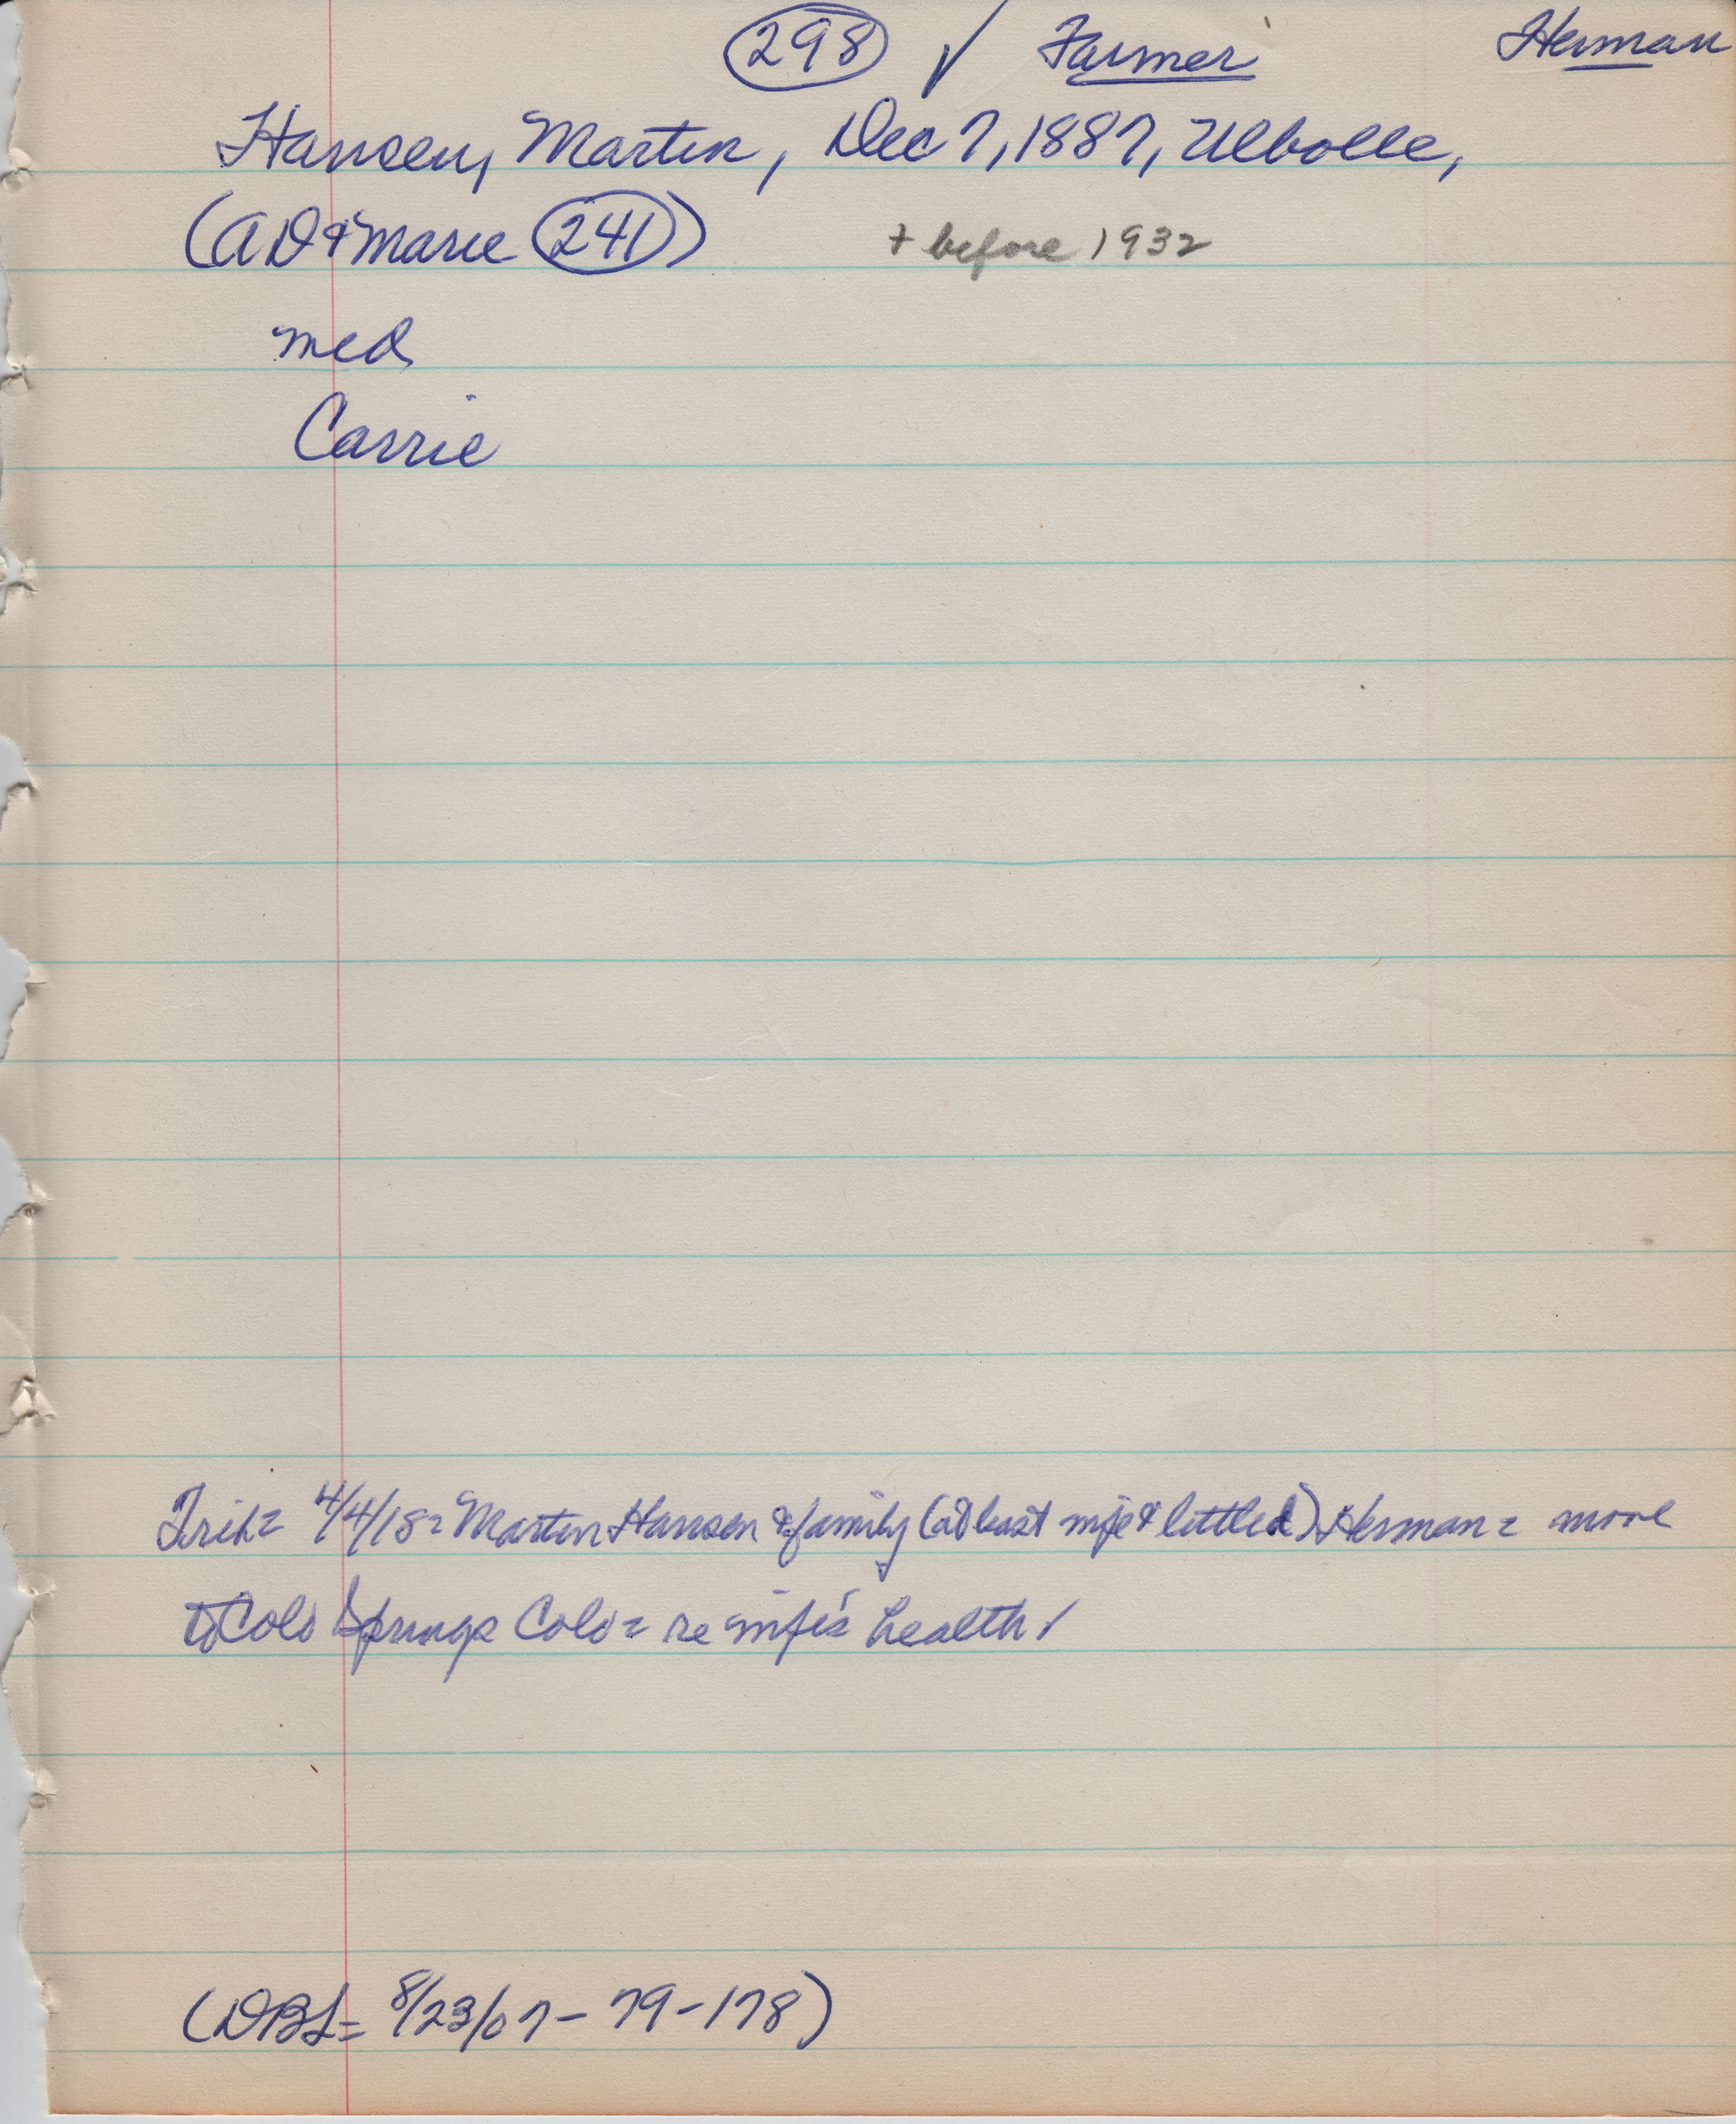 298 ✓ Farmer Herman
Hansen, Martin, Dec 7, 1887, Ulbolle,
(AD & Marie 241) + before 1932
med
Carrie
4/4/18 = Martin Hansen & family (at least wife & little) Herman = move
to Colo Springs Colo = re wife's health ✓
(DBL = 8/23/07 - 79-178)